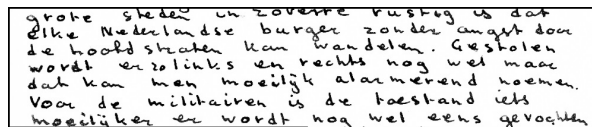 grote steden in zoverre rustig is dat
elke Nederlandse burger zonder angst door
de hoofdstraten kan wandelen. Gestolen
wordt er zo links en rechts nog wel maar
dat kan men moeilijk alarmerend noemen.
Voor de militairen is de toestand iets
moeilijker er wordt nog wel eens gevochten